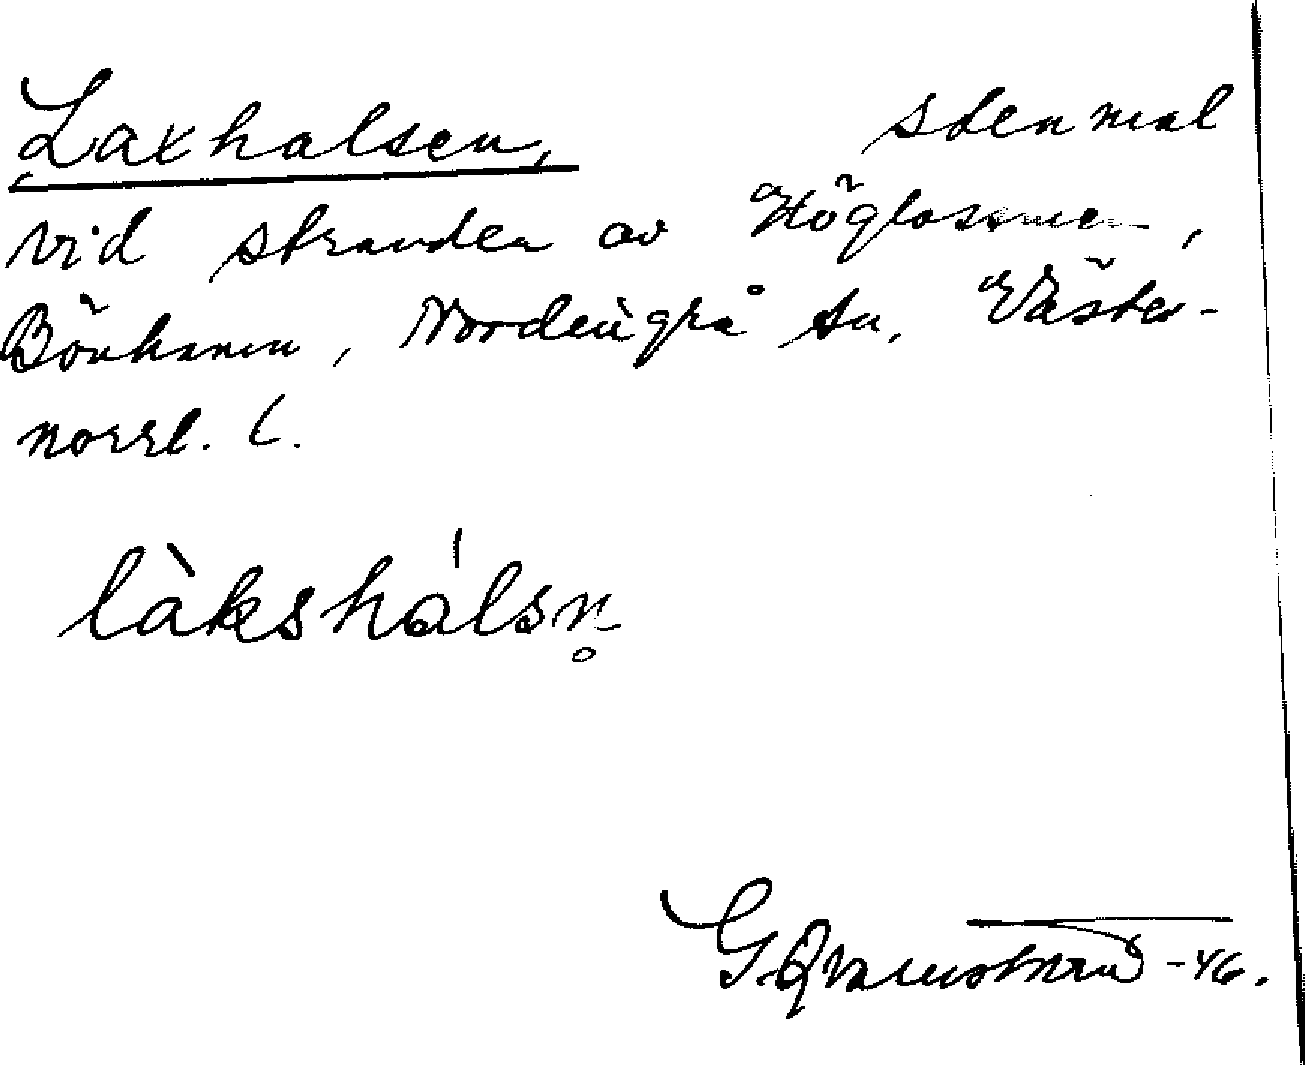 Laxhalsen, stenmal
vid stranden av Höglosmen,
Bönhamn, Nordingrå sn. Väster-
norrl. l.
làkshálsn̥
G. Qvarnström -46.